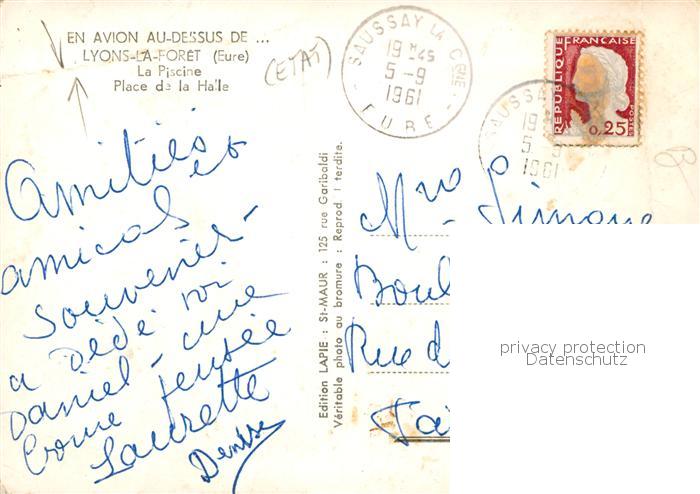 EN AVION AU-DESSUS DE ...
LYONS-LA-FORÊT (Eure)
La Piscine
Place de la Halle
(ETAT)
SAUSSAY LA CGNE
19 H 45
5-9
1961
EURE
RÉPUBLIQUE FRANÇAISE
0,25
POSTES
SAUSSAY
19
5-9
1961
Amitiés et
amical
souvenir -
a Dédé
Daniel - une
bonne pensée
Laurette
Denise
Edition LAPIE : St-MAUR : 125 rue Garibaldi
Véritable photo au bromure : Reprod. Interdite.
Simone
Boul
Rue d
privacy protection
Datenschutz